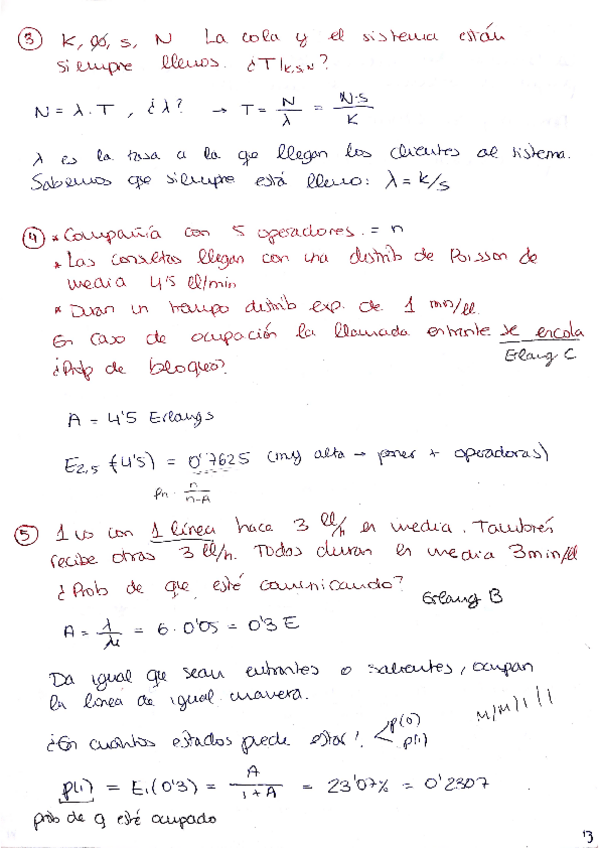 ③ K, ϕó, s, N La cola y el sistema están
siempre llenos. ¿T|K,S,N?
N = λ.T , ¿λ? → T = N/λ = N·s/K
λ es la tasa a la que llegan los clientes al sistema.
Sabemos que siempre está lleno: λ = K/s
④ * Compañía con 5 operadores. = n
* Las consultas llegan con una distrib de Poisson de
media 4'5 ll/min
* Duran un tiempo distrib exp. de 1 min/ll.
En caso de ocupación la llamada entrante se encola
Erlang C
¿Prob de bloqueo?
A = 4'5 Erlangs
E2,5 (4'5) = 0'7625 (muy alta → poner + operadoras)
Pn · n/n-A
⑤ 1 us con 1 línea hace 3 ll/h en media. También
recibe otras 3 ll/h. Todas duran en media 3min/ll
¿Prob de que esté comunicando?
Erlang B
A = λ/μ = 6·0'05 = 0'3 E
Da igual que sean entrantes o salientes, ocupan
la línea de igual manera.
M/M/1/1
¿En cuántos estados puede estar? < p(0) p(1)
p(1) = E1(0'3) = A/1+A = 23'07% = 0'2307
prob de q esté ocupado
13